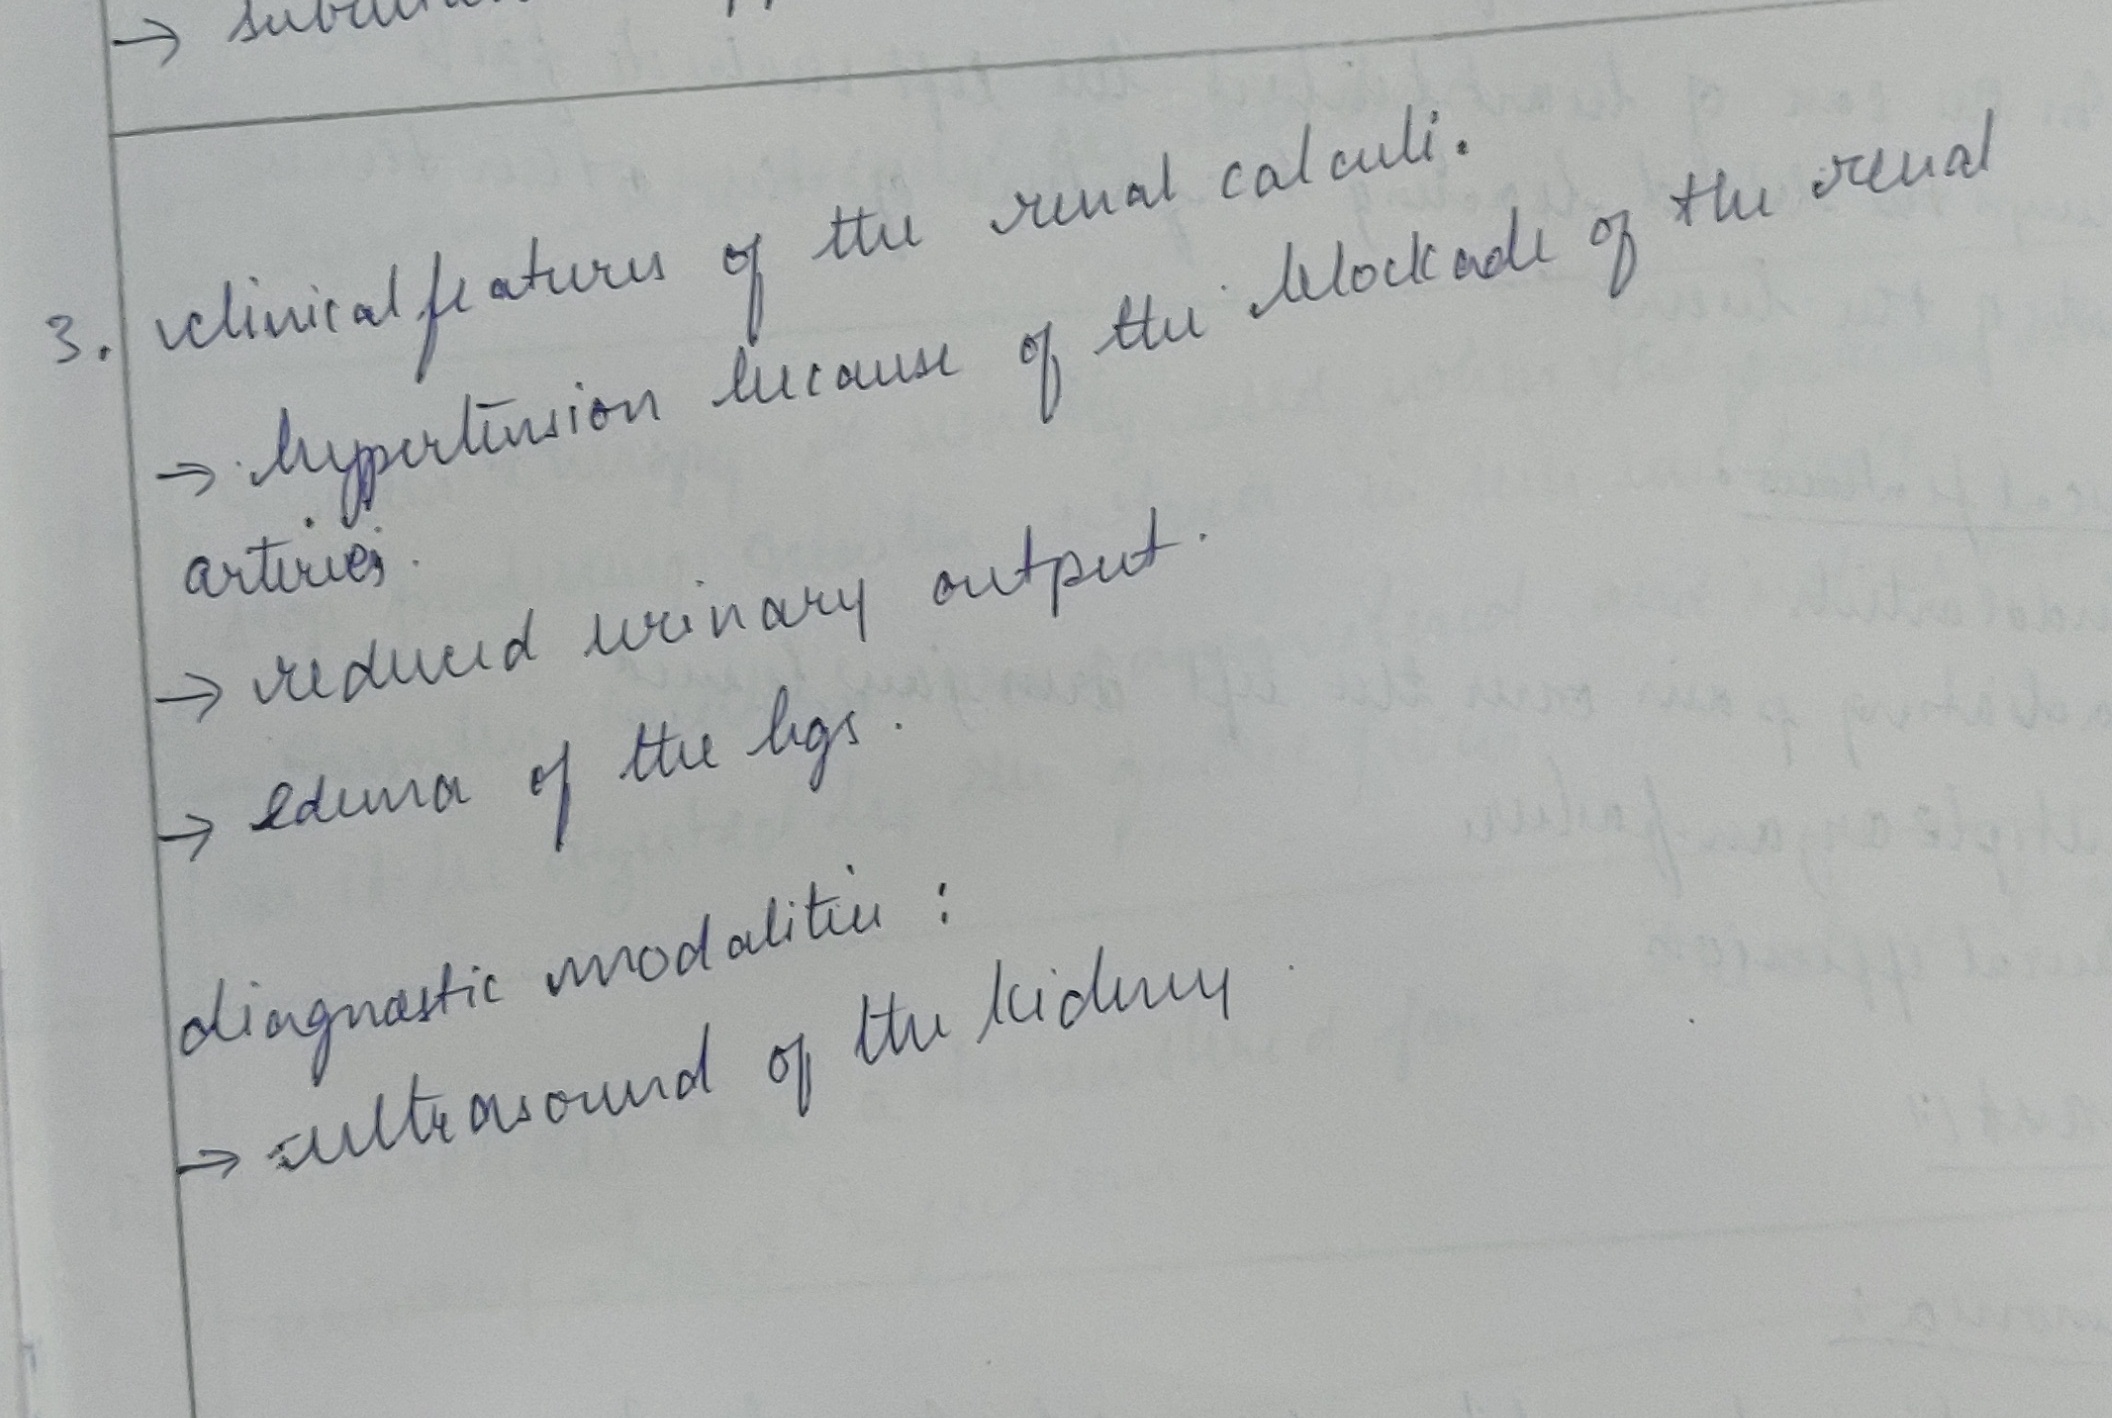 →
3. clinical features of the renal calculi.
→ hypertension because of the blockade of the renal
arteries.
→ reduced urinary output.
→ edema of the legs.
diagnostic modalities :
→ ultrasound of the kidney